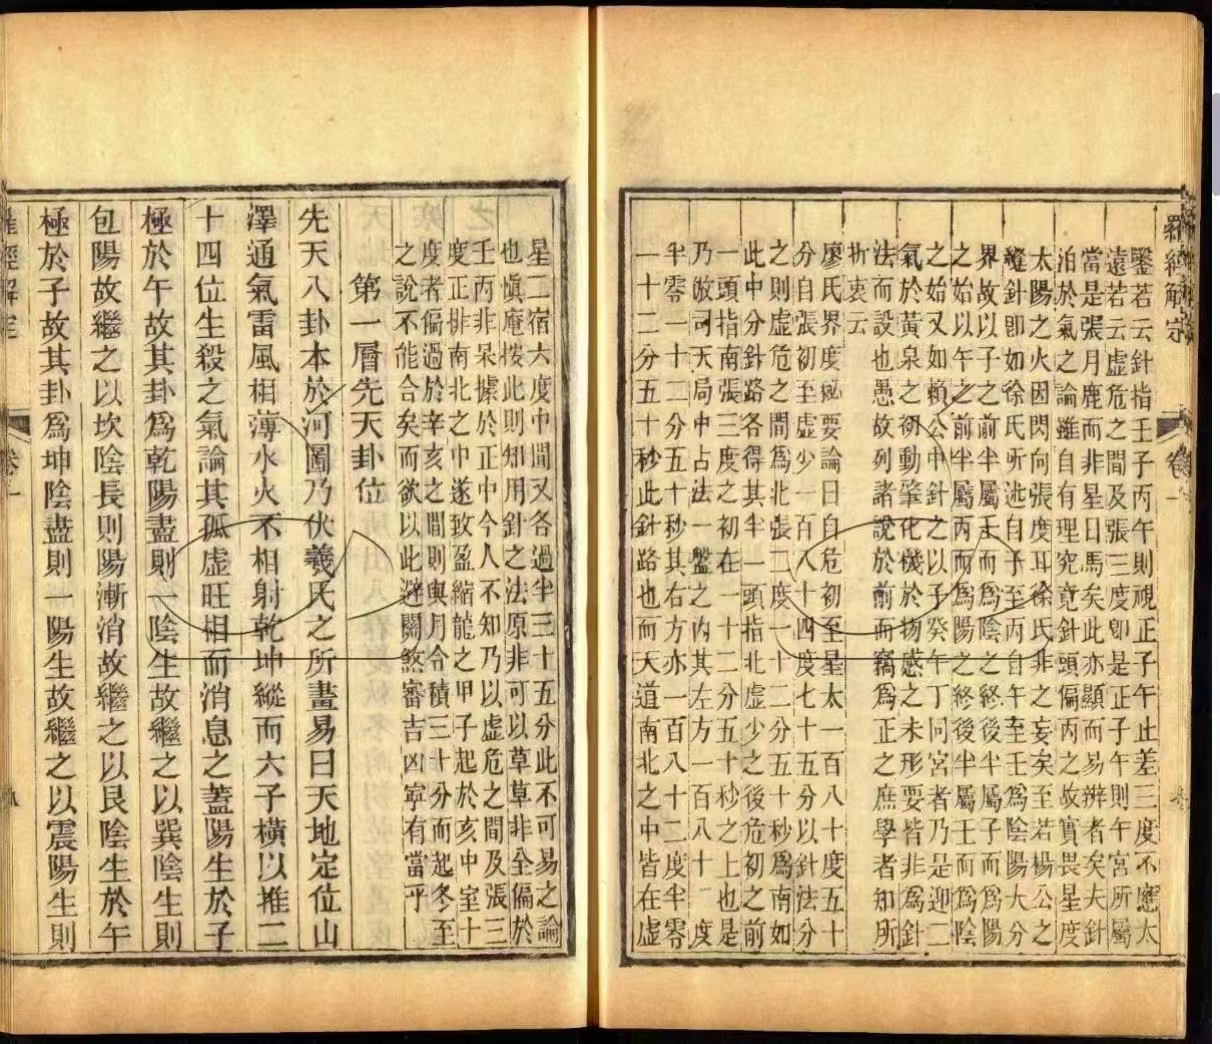 羅經解定
卷一
鑒若云針指壬子丙午則視正子午止差三度不應太
遠若云虛危之間及張三度卽是正子午則午宮所屬
當是張月鹿而非星日馬矣此亦顯而易辨者矣夫針
泊於氣之論雖自有理究竟針頭偏丙之故實畏星度
太陽之火因閃向張度耳徐氏非之妄矣至若楊公之
縫針卽如徐氏所述自子至丙自午至壬爲陰陽大分
界故以子之前半屬壬而爲陰之終後半屬子而爲陽
之始以午之前半屬丙而爲陽之終後半屬壬而爲陰
之始又如賴公中針之以子癸午丁同宮者乃是迎二
氣於黃泉之初動肇化機於物感之未形要皆非爲針
法而設也愚故列諸說於前而竊爲正之庶學者知所
折衷云
廖氏界度祕要論曰自危初至星太一百八十度五十
分自張初至虛少一百八十四度七十五分以針法分
之則虛危之間爲北張二度一十二分五十秒爲南如
此中分針路各得其半一頭指北虛少之後危初之前
一頭指南張三度之初在一十二分五十秒之上也是
乃倣司天局中占法一盤之內其左方一百八十一度
半零一十二分五十秒其右方亦一百八十二度半零
一十二分五十秒此針路也而天道南北之中皆在虛
星二宿六度中間又各過半三十五分此不可易之論
也愼庵按此則知用針之法原非可以草草非全偏於
壬丙非呆據於正中今人不知乃以虛危之間及張三
度正排南北之中遂致盈縮龍之甲子起於亥中室十
度者偏過於辛亥之間則與月令積三十分而起冬至
之說不能合矣而欲以此避關煞審吉凶寧有當乎
第一層先天卦位
先天八卦本於河圖乃伏羲氏之所畫易曰天地定位山
澤通氣雷風相薄水火不相射乾坤縱而六子橫以推二
十四位生殺之氣論其孤虛旺相而消息之蓋陽生於子
極於午故其卦爲乾陽盡則一陰生故繼之以巽陰生則
包陽故繼之以坎陰長則陽漸消故繼之以艮陰生於午
極於子故其卦爲坤陰盡則一陽生故繼之以震陽生則
羅經解定
卷一